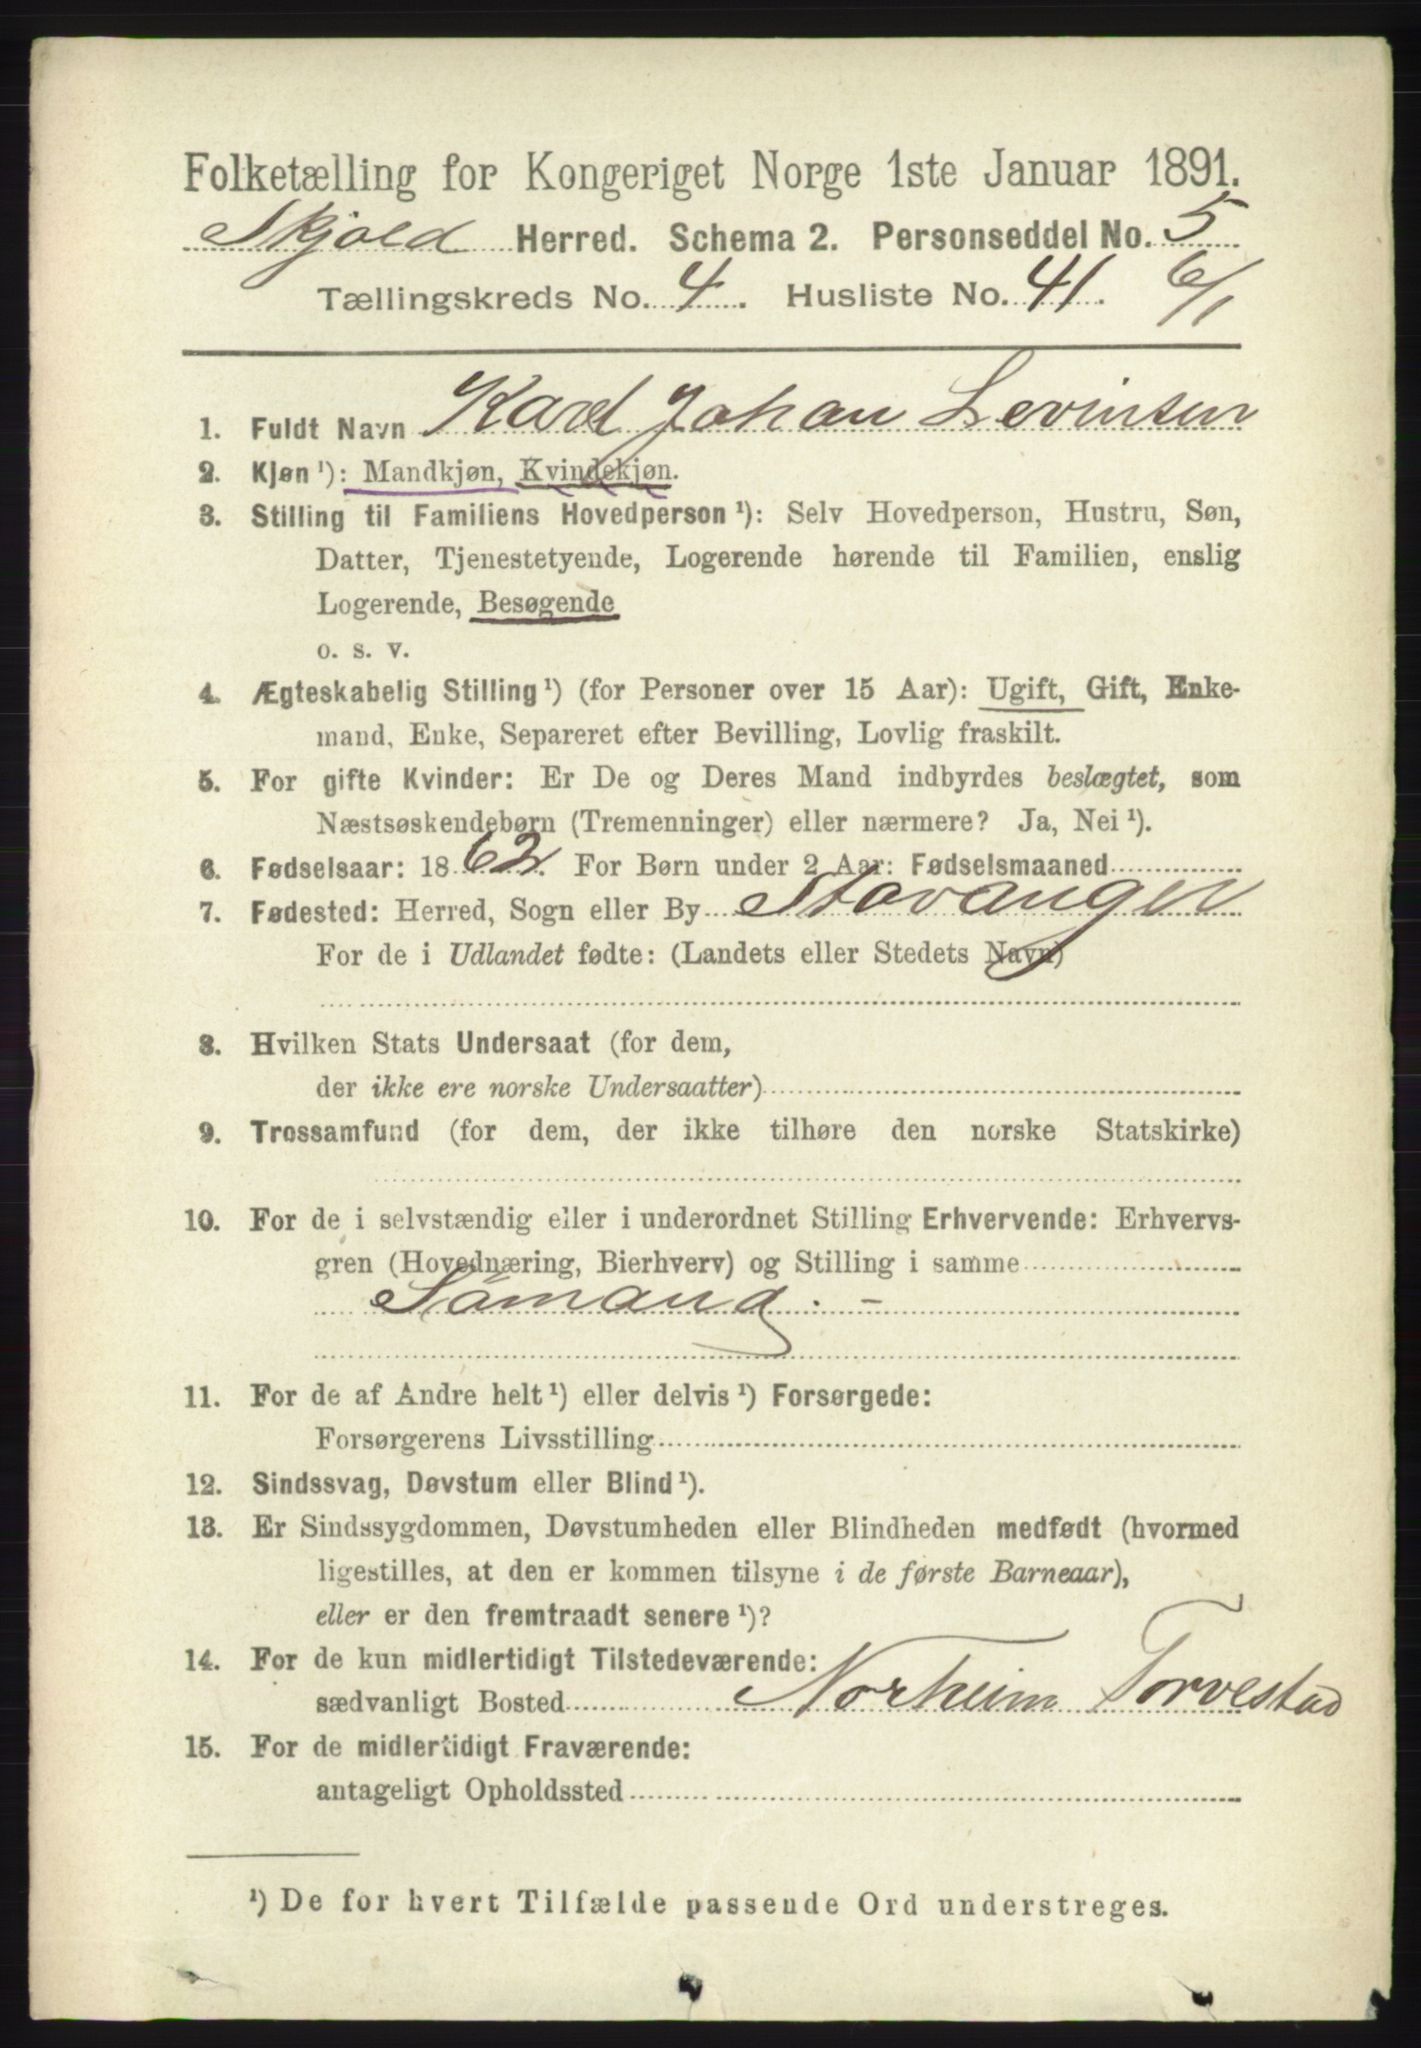 Folketælling for Kongeriget Norge 1ste Januar 1891.
Skjold Herred. Schema 2. Personseddel No. 5
Tællingskreds No. 4. Husliste No. 41. 6/1
1. Fuldt Navn Karl Johan Levinsen
2. Kjøn ¹): Mandkjøn, Kvindekjøn.
3. Stilling til Familiens Hovedperson ¹): Selv Hovedperson, Hustru, Søn,
Datter, Tjenestetyende, Logerende hørende til Familien, enslig
Logerende, Besøgende
o. s. v.
4. Ægteskabelig Stilling ¹) (for Personer over 15 Aar): Ugift, Gift, Enke-
mand, Enke, Separeret efter Bevilling, Lovlig fraskilt.
5. For gifte Kvinder: Er De og Deres Mand indbyrdes beslægtet, som
Næstsøskendebørn (Tremenninger) eller nærmere? Ja, Nei ¹).
6. Fødselsaar: 1862. For Børn under 2 Aar: Fødselsmaaned
7. Fødested: Herred, Sogn eller By Stavanger
For de i Udlandet fødte: (Landets eller Stedets Navn)
8. Hvilken Stats Undersaat (for dem,
der ikke ere norske Undersaatter)
9. Trossamfund (for dem, der ikke tilhøre den norske Statskirke)
10. For de i selvstændig eller i underordnet Stilling Erhvervende: Erhvervs-
gren (Hovednæring, Bierhverv) og Stilling i samme
Sömand. -
11. For de af Andre helt ¹) eller delvis ¹) Forsørgede:
Forsørgerens Livsstilling
12. Sindssvag, Døvstum eller Blind ¹).
13. Er Sindssygdommen, Døvstumheden eller Blindheden medfødt (hvormed
ligestilles, at den er kommen tilsyne i de første Barneaar),
eller er den fremtraadt senere ¹)?
14. For de kun midlertidigt Tilstedeværende:
sædvanligt Bosted Norheim Torvestad
15. For de midlertidigt Fraværende:
antageligt Opholdssted
¹) De for hvert Tilfælde passende Ord understreges.